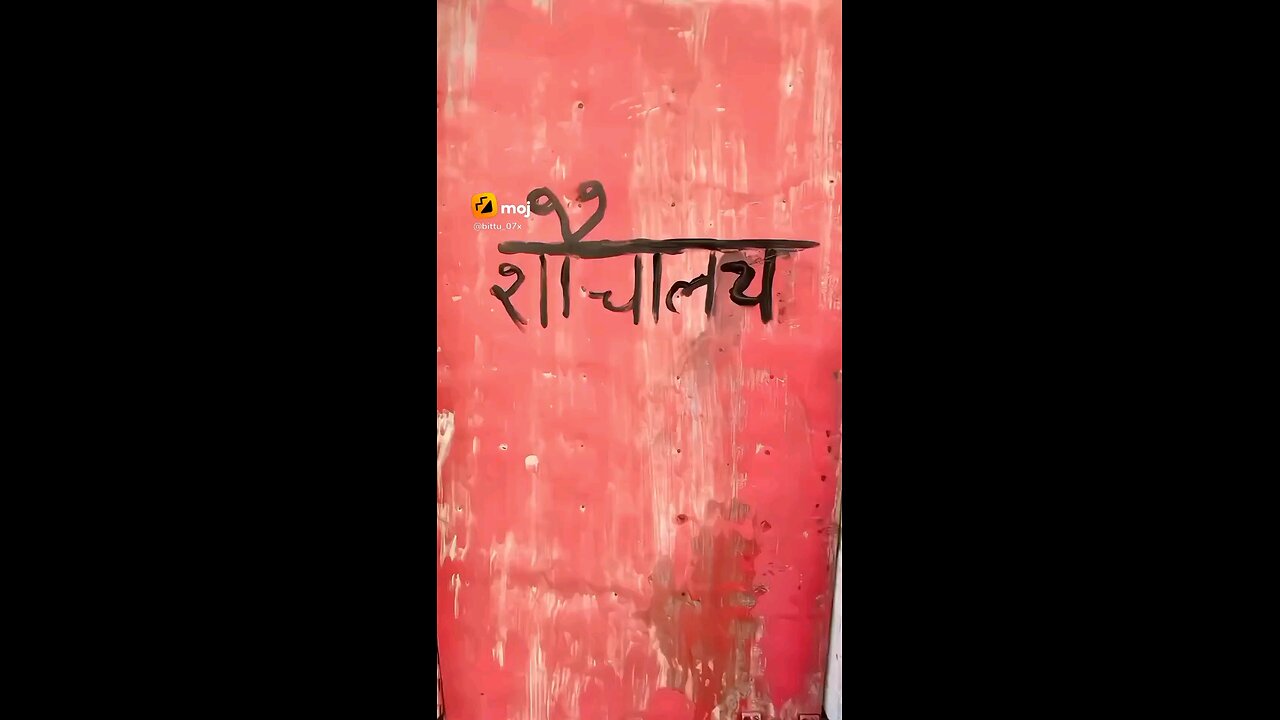 moj
@bittu_07x
शौचालय